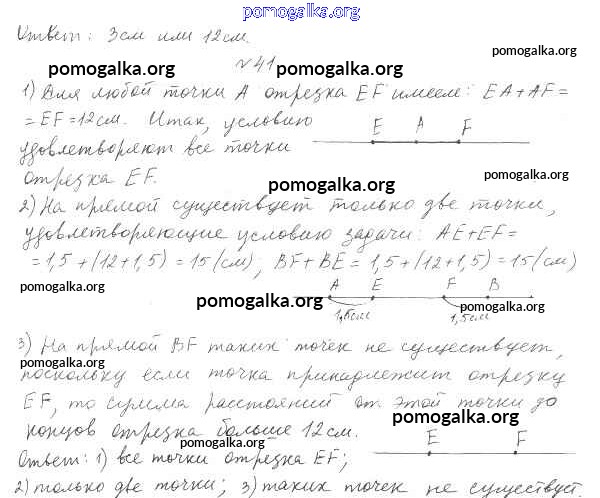 pomogalka.org
Ответ: 3см или 12см.
pomogalka.org
№41
pomogalka.org
pomogalka.org
1) Для любой точки A отрезка EF имеем: EA+AF=
=EF=12см. Итак, условию
E A F
удовлетворяют все точки
pomogalka.org
отрезка EF.
pomogalka.org
2) На прямой существует только две точки,
удовлетворяющие условию задачи: AE+EF=
=1,5+(12+1,5)=15(см); BF+BE=1,5+(12+1,5)=15(см)
pomogalka.org
A E F B
pomogalka.org
pomogalka.org
1,5см 1,5см
3) На прямой BF таких точек не существует,
pomogalka.org
поскольку если точка принадлежит отрезку
EF, то сумма расстояний от этой точки до
pomogalka.org
концов отрезка больше 12см.
pomogalka.org
E F
Ответ: 1) все точки отрезка EF;
2) только две точки; 3) таких точек не существует.